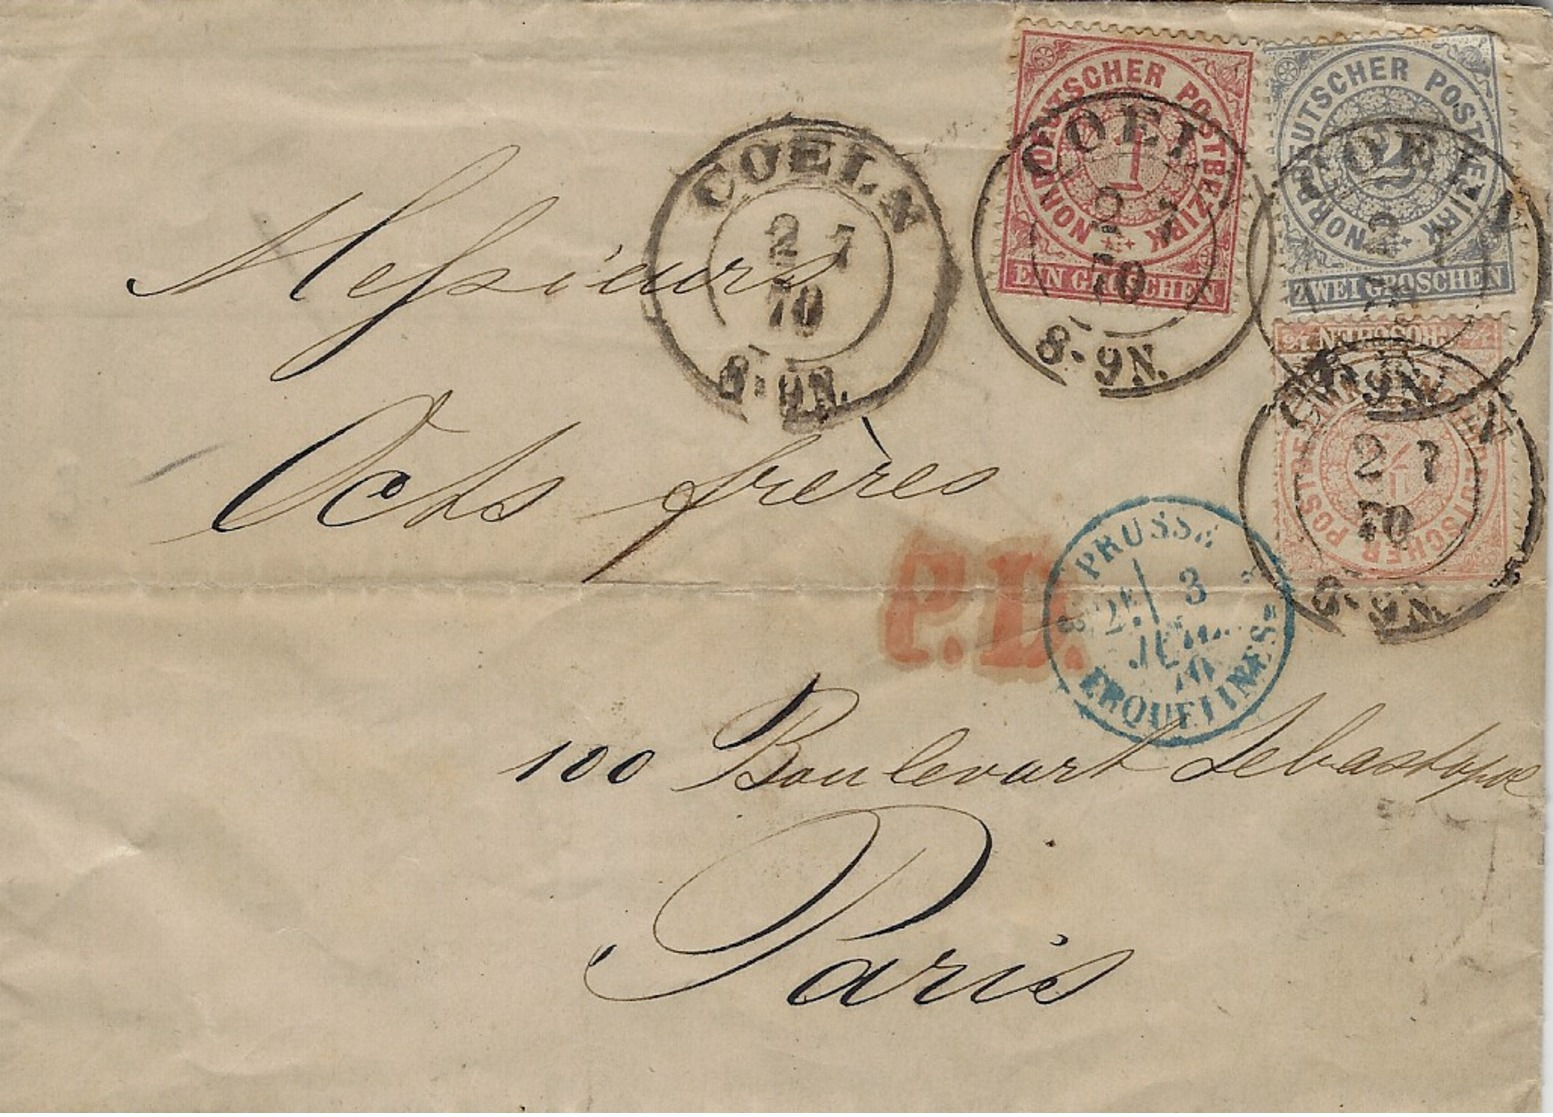 NORDDEUTSCHER POSTBEZIRK
1
EIN GROSCHEN
NORDDEUTSCHER POSTBEZIRK
2
ZWEI GROSCHEN
COELN
2 7
70
8-9N.
COELN
2 7
70
8-9N.
COELN
2
9N.
COELN
2 7
70
8-9N.
Messieurs
Ochs frères
P.D.
PRUSSE
3
JUIL.
70
ERQUELINES
100 Boulevart Sebastopol
Paris